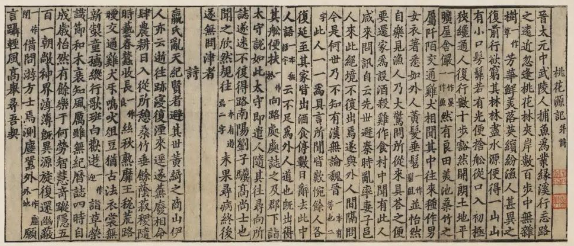 桃花源記并詩
晉太元中武陵人捕魚為業緣溪行忘路
之遠近忽逢桃花林夾岸數百步中無雜
樹芳華鮮美落英繽紛漁人甚異之
復前行欲窮其林林盡水源便得一山山
有小口髣髴若有光便捨舩從口入初極
狹纔通人復行數十步豁然開朗土地平
曠屋舍儼然有良田美池桑竹之
屬阡陌交通雞犬相聞其中往來種作男
女衣著悉如外人黃髮垂髫並怡然
自樂見漁人乃大驚問所從來具答之便
要還家為設酒殺雞作食村中聞有此人
咸來問訊自云先世避秦時亂率妻子邑
人來此絕境不復出焉遂與外人間隔問
今是何世乃不知有漢無論魏晉
此人一一為具言所聞皆歎惋餘人各
復延至其家皆出酒食停數日辭去此中
人語云不足為外人道也既出得
其船便扶向路處處誌之及郡下詣
太守說如此太守即遣人隨其往尋向所
誌遂迷不復得路南陽劉子驥高尚士也
聞之欣然規往未果尋病終後
遂無問津者
詩
嬴氏亂天紀賢者避其世黃綺之商山伊
人亦云逝往跡浸復湮來逕遂蕪廢相命
肆農耕日入從所憩桑竹垂餘蔭菽稷隨
時藝春蠶收長絲秋熟靡王稅荒路
曖交通雞犬互鳴吠俎豆猶古法衣裳無
新製童孺縱行歌班白歡遊詣草榮
識節和木衰知風厲雖無紀曆誌四時自
成歲怡然有餘樂于何勞智慧奇蹤隱五
百一朝敞神界淳薄既異源旋復還幽蔽
借問游方士焉測塵囂外願
言躡輕風高舉尋吾契